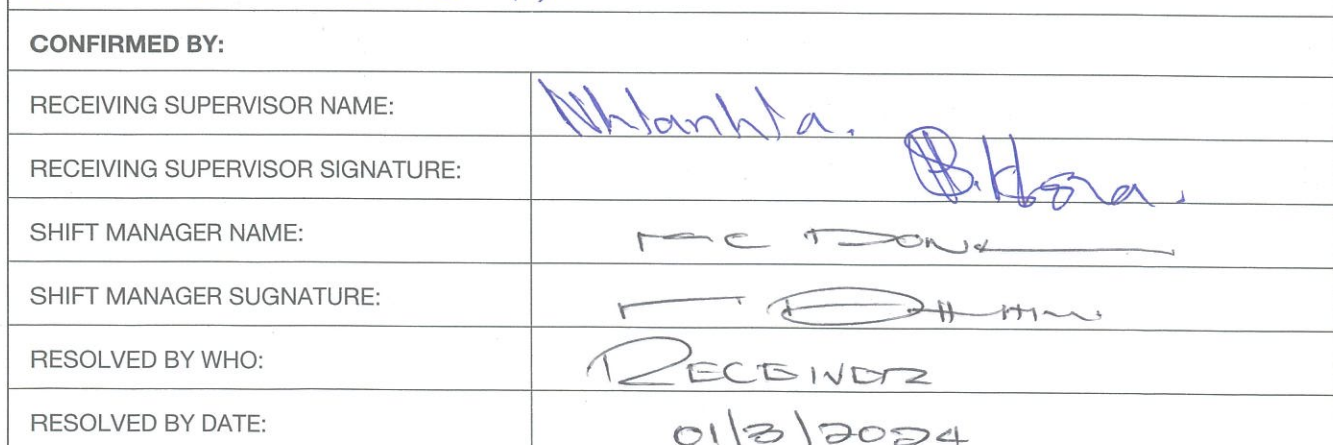 CONFIRMED BY:
RECEIVING SUPERVISOR NAME: Nhlanhla.
RECEIVING SUPERVISOR SIGNATURE:
SHIFT MANAGER NAME:
SHIFT MANAGER SUGNATURE:
RESOLVED BY WHO: RECEIVER
RESOLVED BY DATE: 01/3/2024